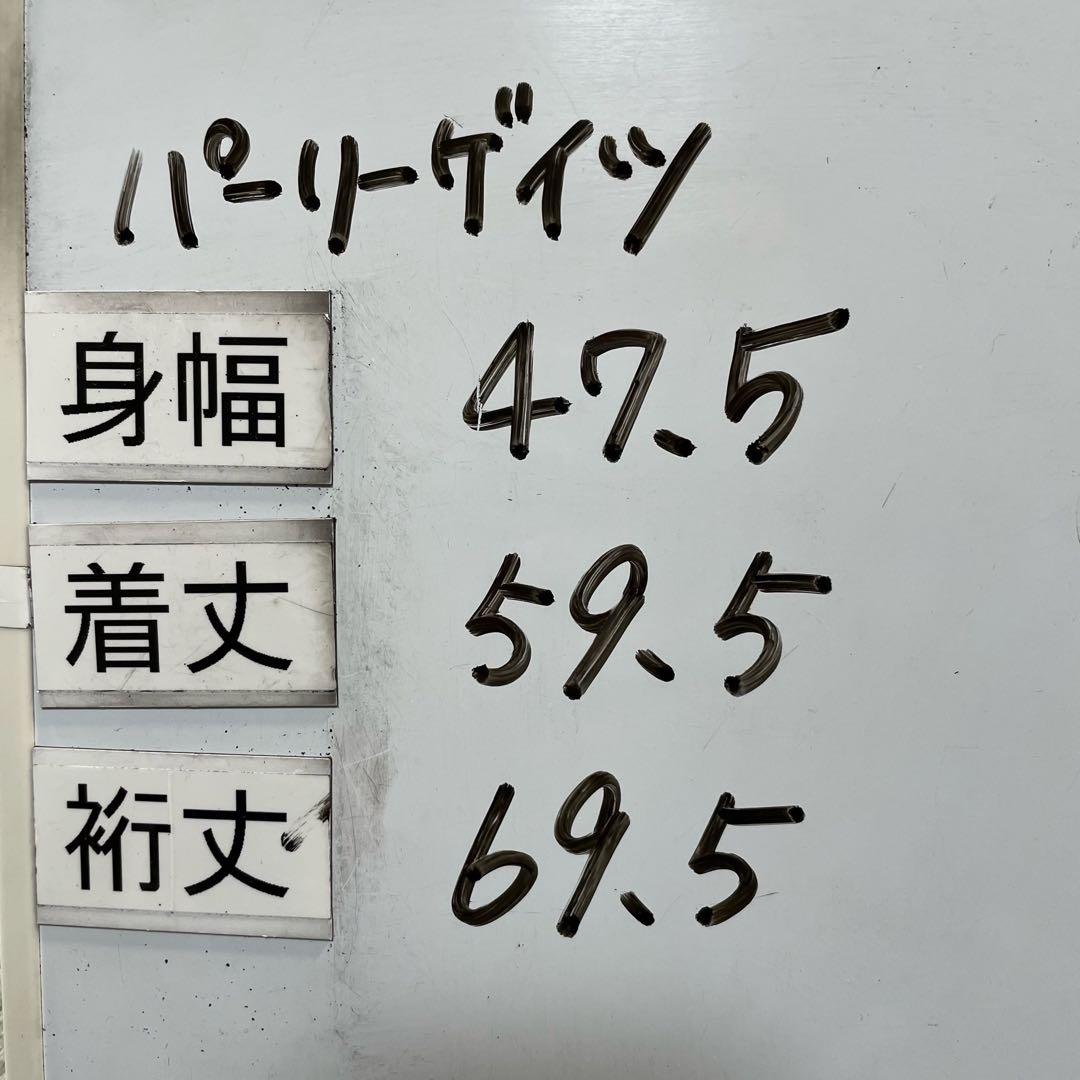 パーリーゲイツ
身幅 47.5
着丈 59.5
裄丈 69.5